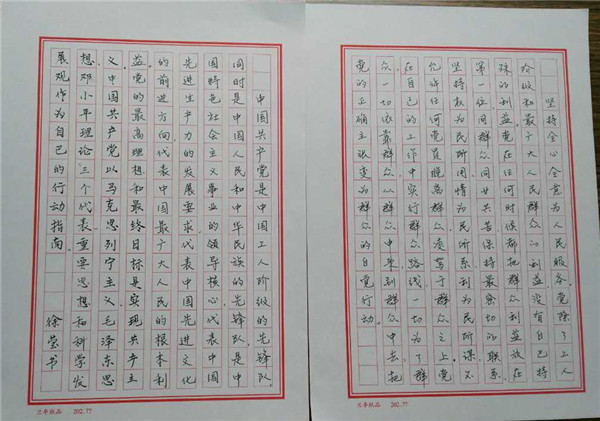 坚持全心全意为人民服务。党除了工人
阶级和最广大人民群众的利益,没有自己特
殊的利益。党在任何时候都把群众利益放在
第一位,同群众同甘共苦,保持最密切的联系,
坚持权为民所用,情为民所系,利为民所谋,不
允许任何党员脱离群众,凌驾于群众之上。党
在自己的工作中实行群众路线,一切为了群
众,一切依靠群众,从群众中来,到群众中去,把
党的正确主张变为群众的自觉行动。
202.77
中国共产党是中国工人阶级的先锋队,
同时是中国人民和中华民族的先锋队,是中
国特色社会主义事业的领导核心,代表中国
先进生产力的发展要求,代表中国先进文化
的前进方向,代表中国最广大人民的根本利
益。党的最高理想和最终目标是实现共产主
义。中国共产党以马克思列宁主义、毛泽东思
想、邓小平理论、“三个代表”重要思想和科学发
展观作为自己的行动指南。 徐莹书
202.77